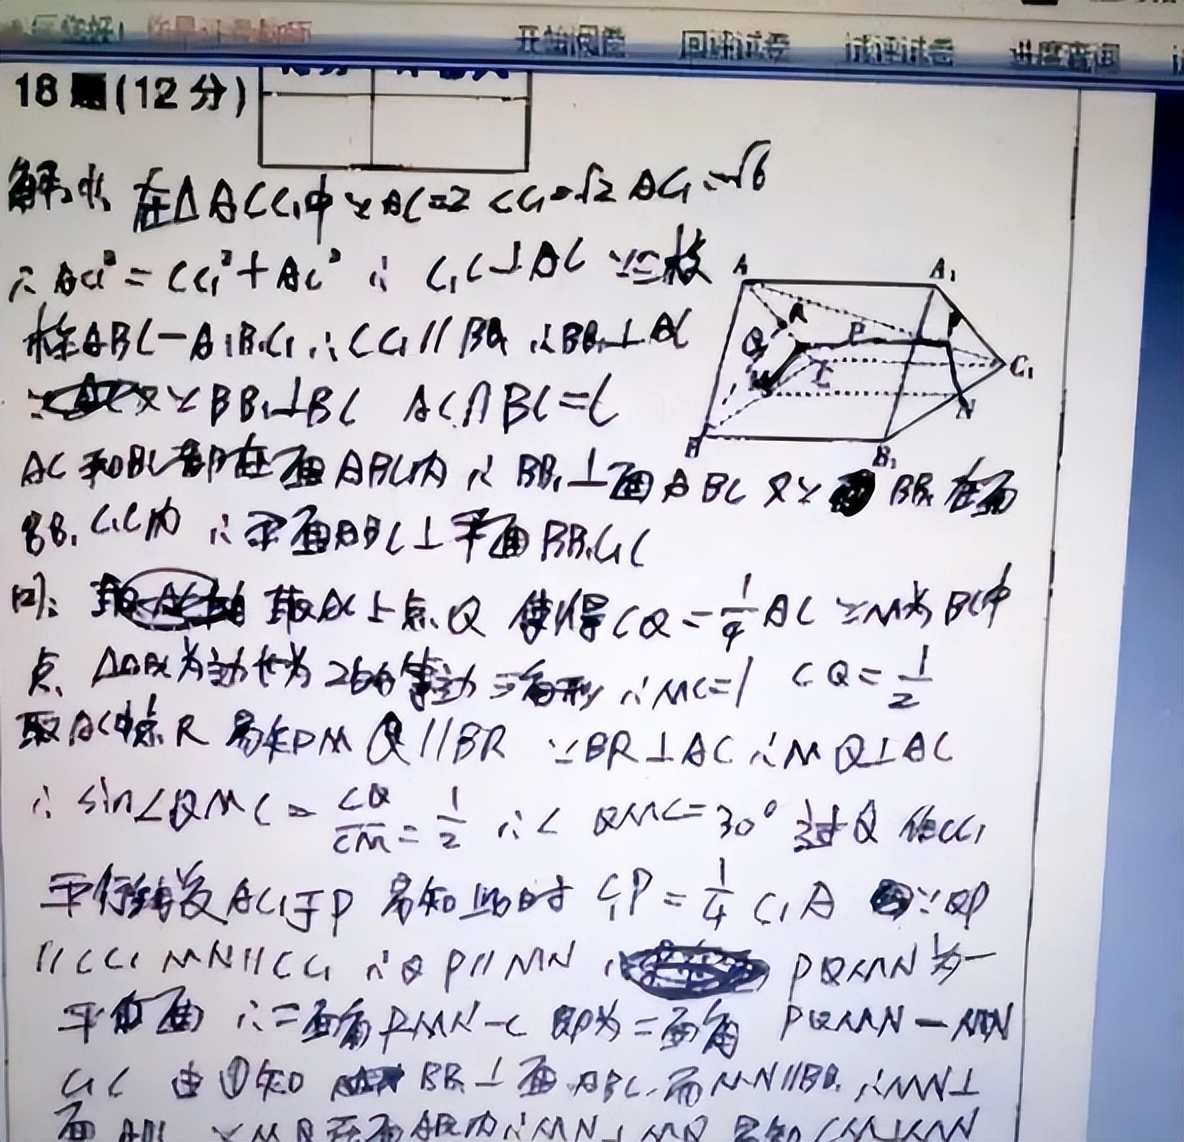 开始阅卷 回评试卷 试评试卷 进度查询
18 题(12分)
解: 在△ACC₁中 ∵AC=2 CC₁=√2 AC₁=√6
∴AC₁²=CC₁²+AC² ∴ C₁C⊥AC ∵三棱
柱ABC-A₁B₁C₁ ∴CC₁//BB₁ ∴BB₁⊥AC
∵BB₁⊥BC AC∩BC=C
AC和BC都在面ABC内 ∴BB₁⊥面ABC 又∵ BB₁在面
BB₁C₁C内 ∴平面ABC⊥平面BB₁C₁C
取AC上点Q 使得CQ=1/4AC ∵M为BC中
点 △ABC为边长为2的等边三角形 ∴MC=1 CQ=1/2
取AC中点R 易知 MQ//BR ∵BR⊥AC ∴MQ⊥AC
∴sin∠QMC=CQ/CM=1/2 ∴∠QMC=30° 过Q作CC₁
平行线交AC₁于P 易知此时 C₁P=1/4C₁A ∵QP
//CC₁ MN//CC₁ ∴QP//MN PQMN为一
平面 ∴二面角PMN-C 即为二面角 PQMN-MN
C₁C 由①知 BB₁⊥面ABC 而MN//BB₁ ∴MN⊥
A A₁
R
Q P
M C C₁
N
B B₁